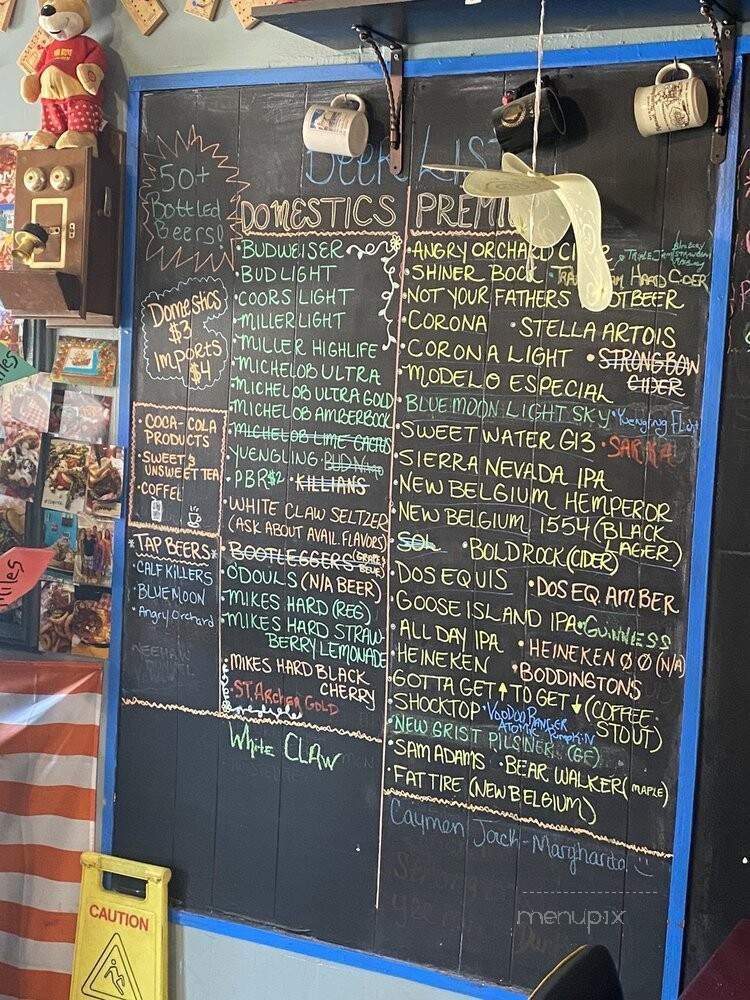 BEER LIST
50+
Bottled
Beers!
Domestics
$3
Imports
$4
• COCA-COLA
PRODUCTS
• SWEET &
UNSWEET TEA
• COFFEE
*TAP BEERS*
• CALFKILLERS
• BLUE MOON
• Angry Orchard
DOMESTICS
• BUDWEISER
• BUD LIGHT
• COORS LIGHT
• MILLER LIGHT
• MILLER HIGHLIFE
• MICHELOB ULTRA
• MICHELOB ULTRA GOLD
• MICHELOB AMBERBOCK
• MICHELOB LIME CACTUS
• YUENGLING
• PBR $2 • KILLIANS
• WHITE CLAW SELTZER
(ASK ABOUT AVAIL FLAVORS)
• BOOTLEGGERS (GRAPE &
BLUE)
• O'DOULS (N/A BEER)
• MIKES HARD (REG)
• MIKES HARD STRAW-
BERRY LEMONADE
• MIKES HARD BLACK
CHERRY
• ST. Archer GOLD
White CLAW
PREMI
• ANGRY ORCHARD
• SHINER BOCK HARD CIDER
• NOT YOUR FATHERS OTBEER
• CORONA • STELLA ARTOIS
• CORONA LIGHT • STRONGBOW
CIDER
• MODELO ESPECIAL
• BLUE MOON LIGHT SKY • Yuengling Flight
• SWEET WATER G13
• SIERRA NEVADA IPA
• NEW BELGIUM HEMPEROR
• NEW BELGIUM 1554 (BLACK
LAGER)
• SOL • BOLD ROCK (CIDER)
• DOS EQUIS • DOS EQ. AMBER
• GOOSE ISLAND IPA • GUINNESS
• ALL DAY IPA • HEINEKEN 00 (N/A)
• HEINEKEN • BODDINGTONS
• GOTTA GET ↑ TO GET ↓ (COFFEE
STOUT)
• SHOCKTOP • VOODOO RANGER
ATOMIC Pumpkin
• NEW GRIST PILSINER (GF)
• SAM ADAMS • BEAR WALKER (MAPLE)
• FAT TIRE (NEW BELGIUM)
Caymen Jack-Margharita
CAUTION
menupix